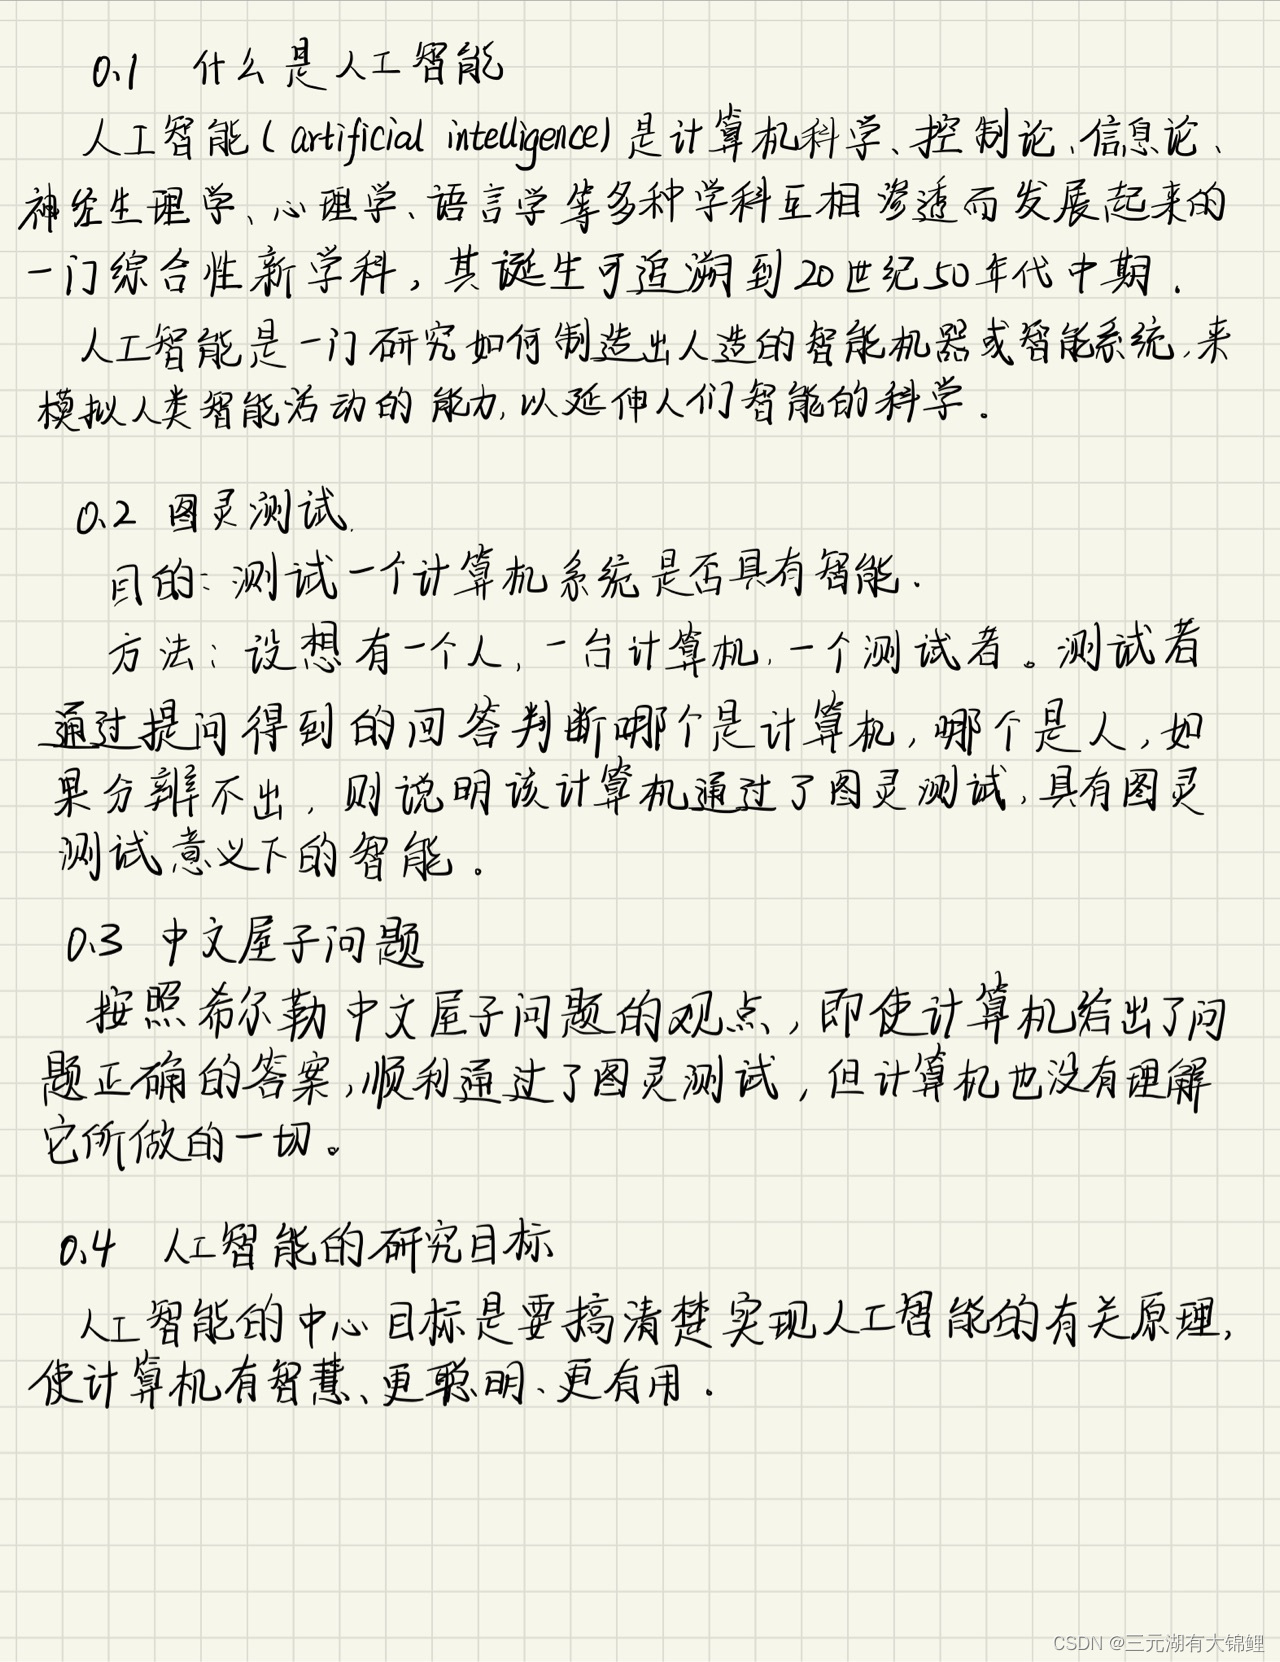 0.1 什么是人工智能
人工智能(artificial intelligence)是计算机科学、控制论、信息论、
神经生理学、心理学、语言学等多种学科互相渗透而发展起来的
一门综合性新学科,其诞生可追溯到20世纪50年代中期.
人工智能是一门研究如何制造出人造的智能机器或智能系统,来
模拟人类智能活动的能力,以延伸人们智能的科学.
0.2 图灵测试.
目的:测试一个计算机系统是否具有智能.
方法:设想有一个人,一台计算机,一个测试者。测试者
通过提问得到的回答判断哪个是计算机,哪个是人,如
果分辨不出,则说明该计算机通过了图灵测试,具有图灵
测试意义下的智能。
0.3 中文屋子问题
按照希尔勒中文屋子问题的观点,即使计算机给出了问
题正确的答案,顺利通过了图灵测试,但计算机也没有理解
它所做的一切。
0.4 人工智能的研究目标
人工智能的中心目标是要搞清楚实现人工智能的有关原理,
使计算机有智慧、更聪明、更有用.
CSDN @三元湖有大锦鲤